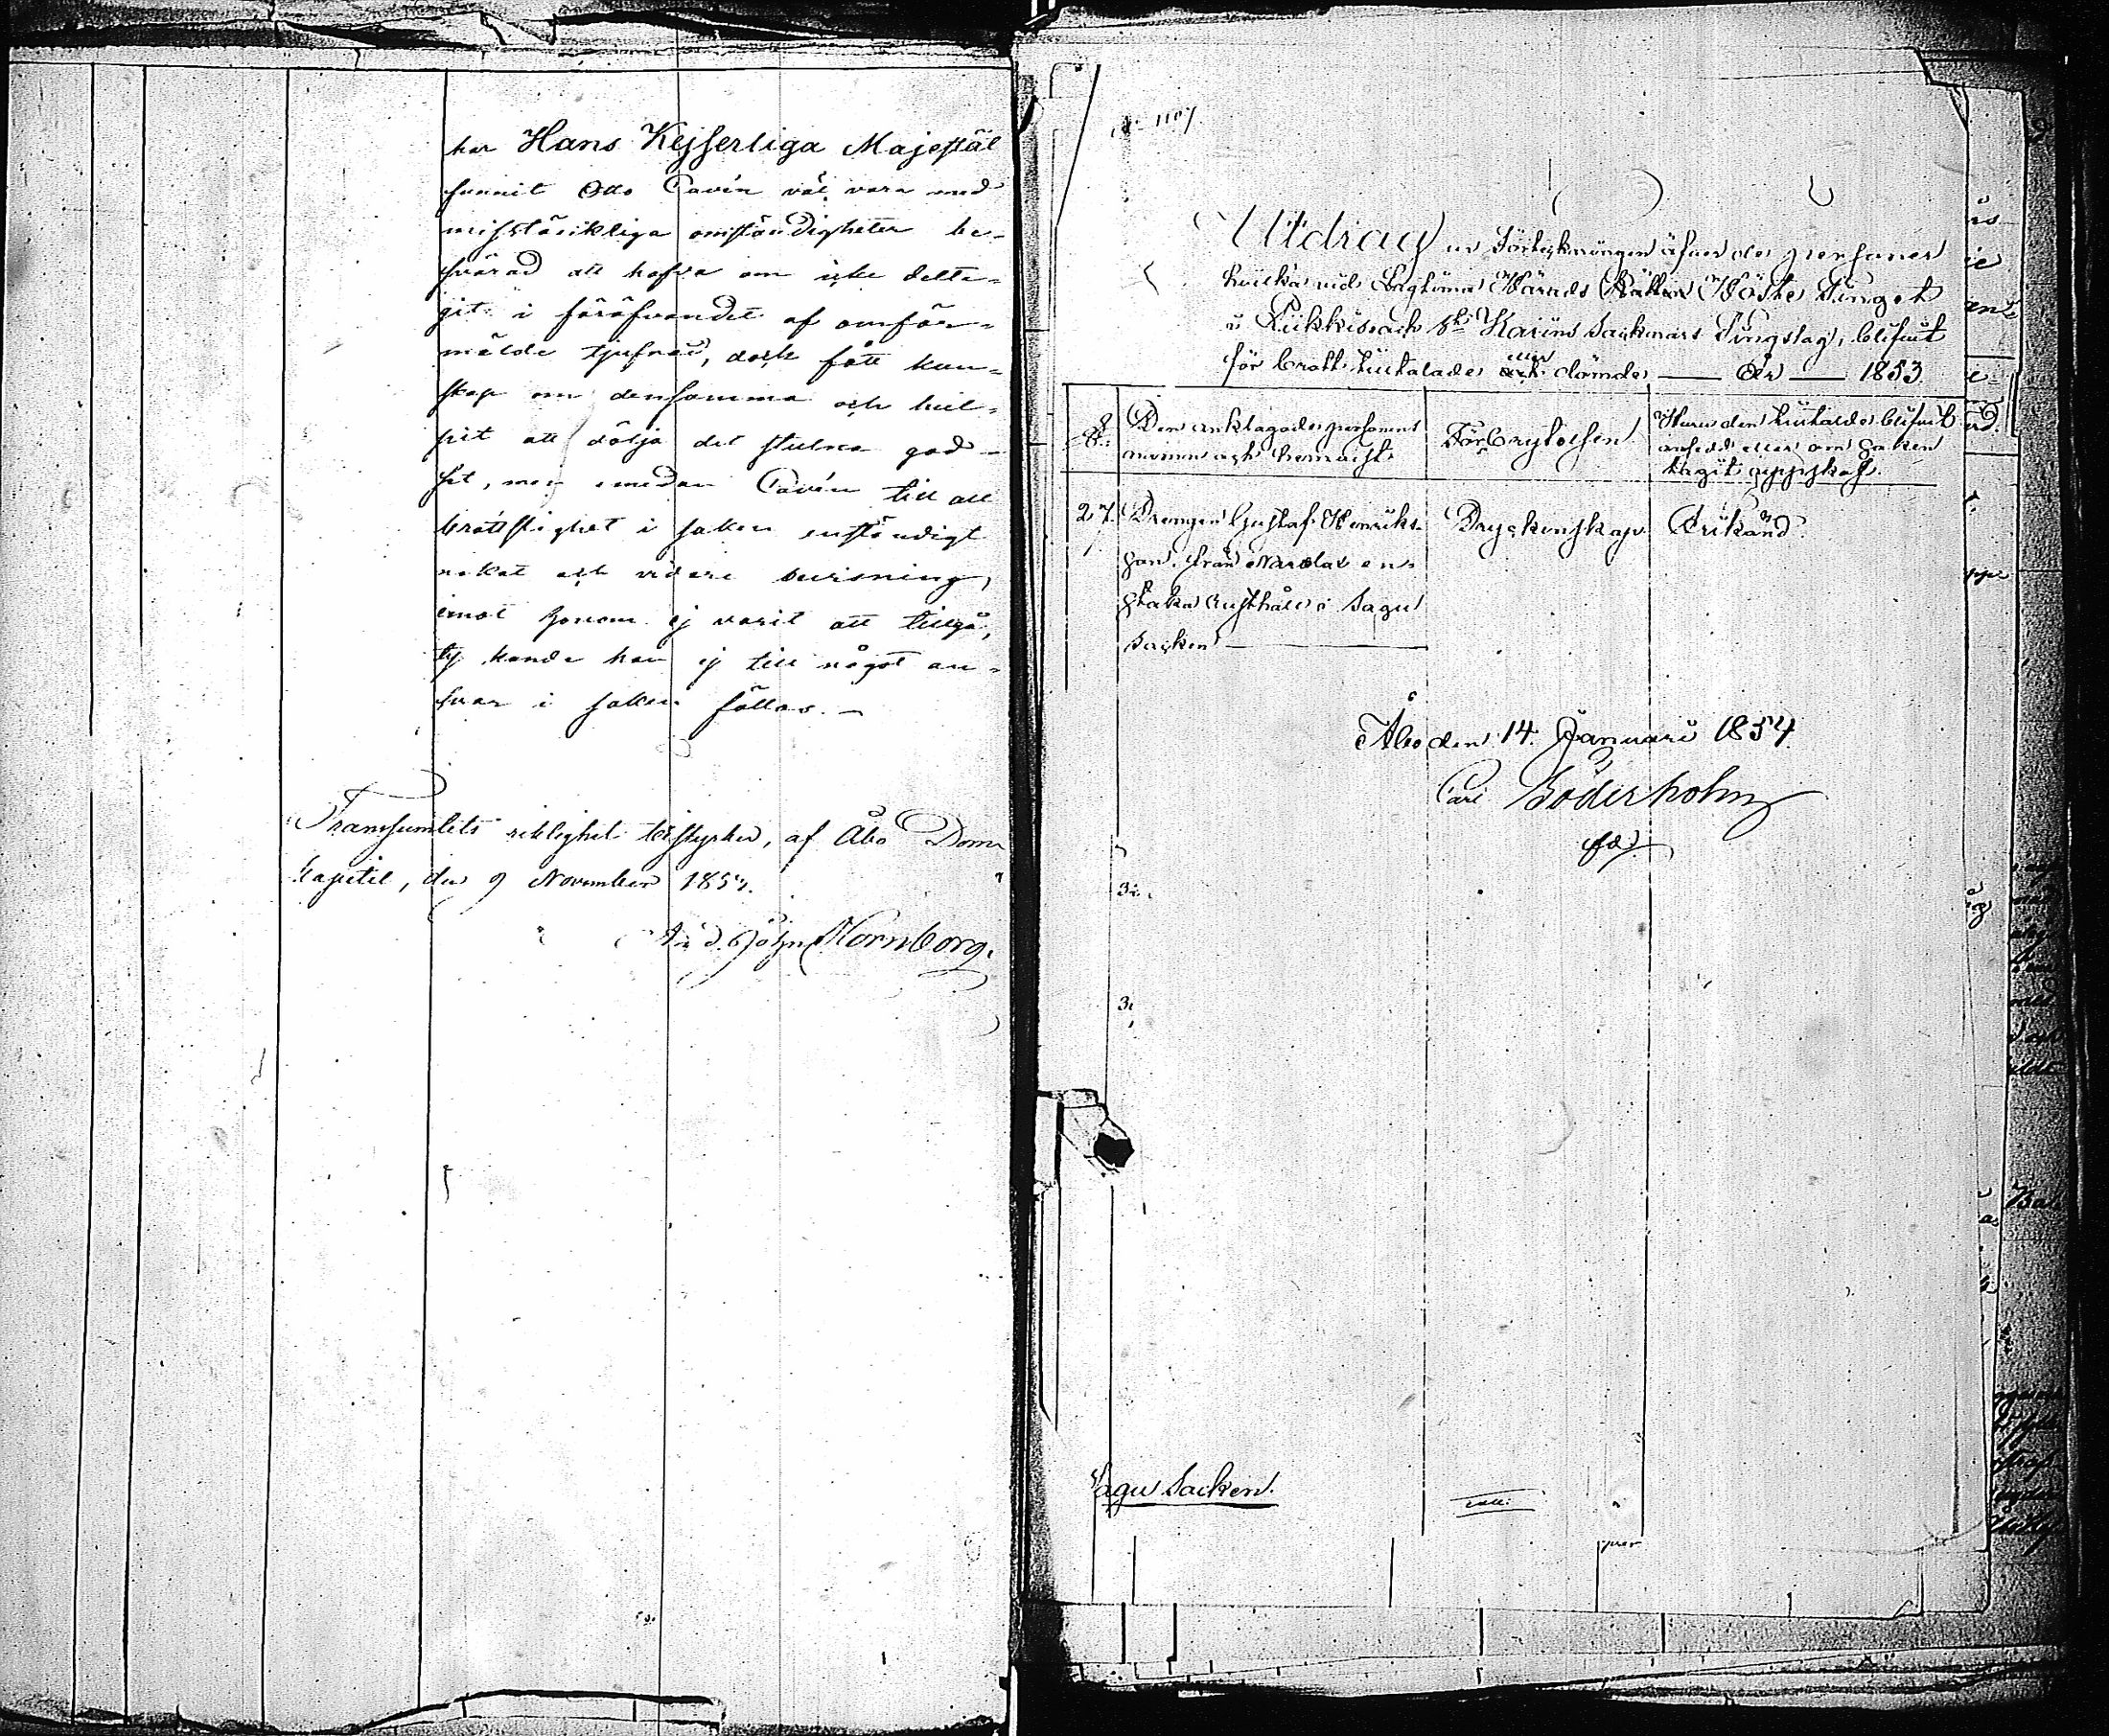 har Hans Kejserliga Majestät
funnit Otto Cavén väl vara med
misstänkliga omständigheter be-
svärad att hafva om icke delta-
git i föröfvandet af omför-
mälde tjufnad, dock fått kun-
skap om densamma och hul-
pit att dölja det stulna god-
set, men emedan Cavén till all
brottslighet i saken enständigt
nekat och vidare bevisning,
emot honom ej varit att tillgå,
ty kunde han ej till något an-
svar i saken fällas. —
Transumtets riktighet bestyrker, af Åbo Dom
kapitel, den 9 November 1853.
John Hornborg.
1107
Utdrag ur Förteckningen öfver de personer
hvilka vid Häradsrättens Höste Tinget
i Pikkis och S:t Karins Socknars Tingslag, blifvit
för brott tilltalade eller dömde — År — 1853.
Den anklagade personens
namn och hemvist.
Förbrytelsen
Huru den tilltalde blifvit
ansedd eller om saken
tagit uppskof.
27. Drengen Gustaf Henriks-
son från en-
staka rusthåll i Sagu
Socken —
Dryckenskap
Frikänd.
Åbo den 14. Januari 1854.
Carl Söderholm
Sagu Socken.